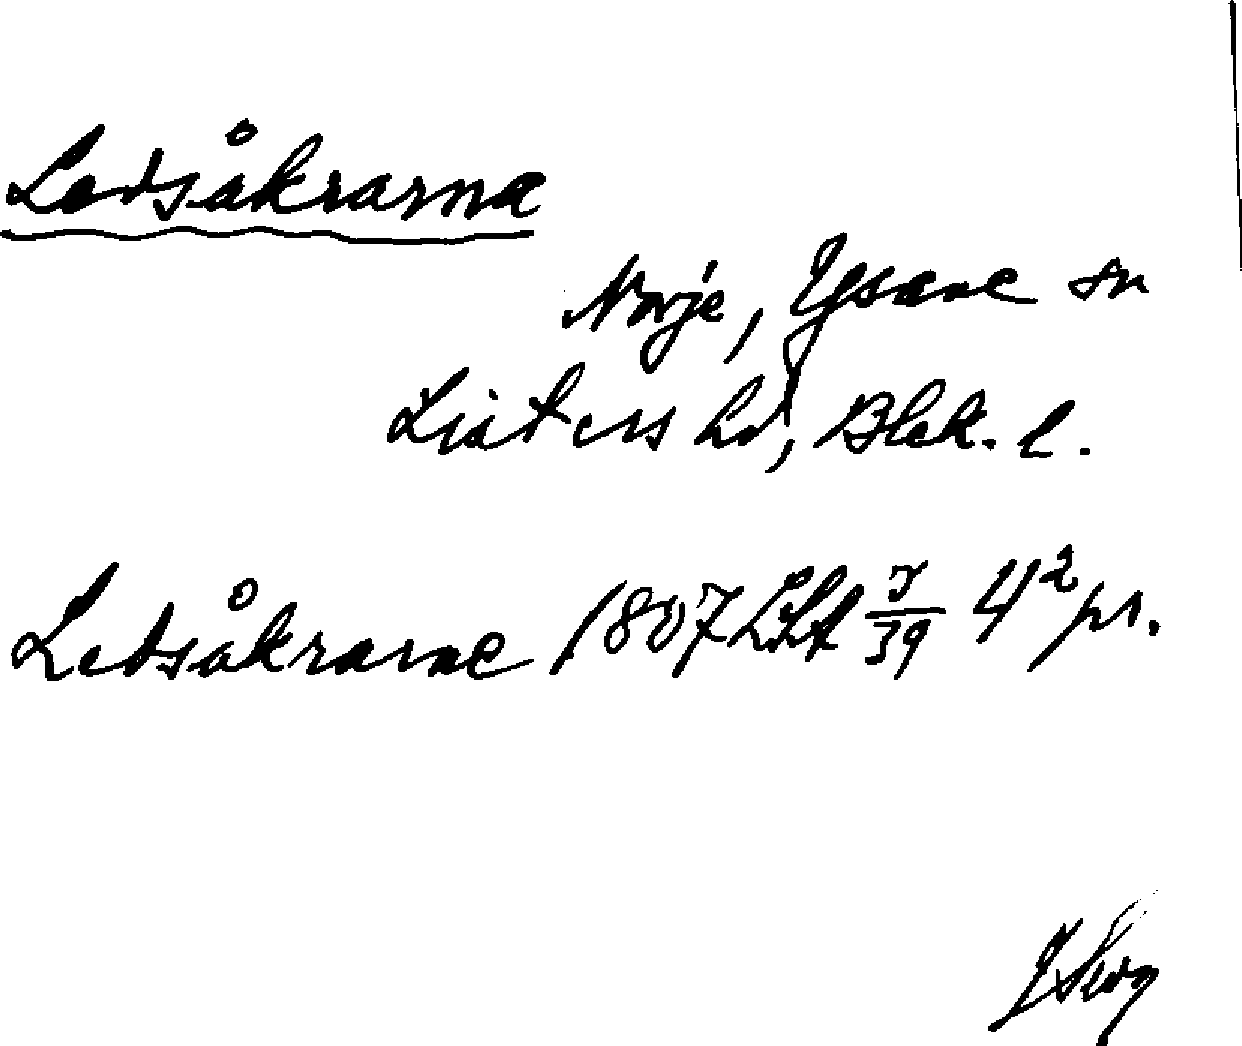 Ledsåkrarna
Norje, Ysane sn
Listers hd, Blek. l.
Ledsåkrarne 1807 LSA 7/39 4² pr.